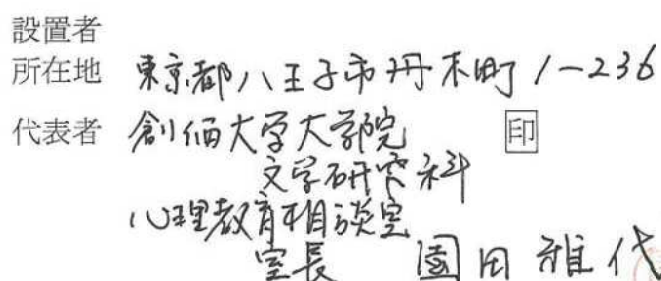 設置者
所在地 東京都八王子市丹木町1-236
代表者 創価大学大学院 印
文学研究科
心理教育相談室
室長 園田雅代